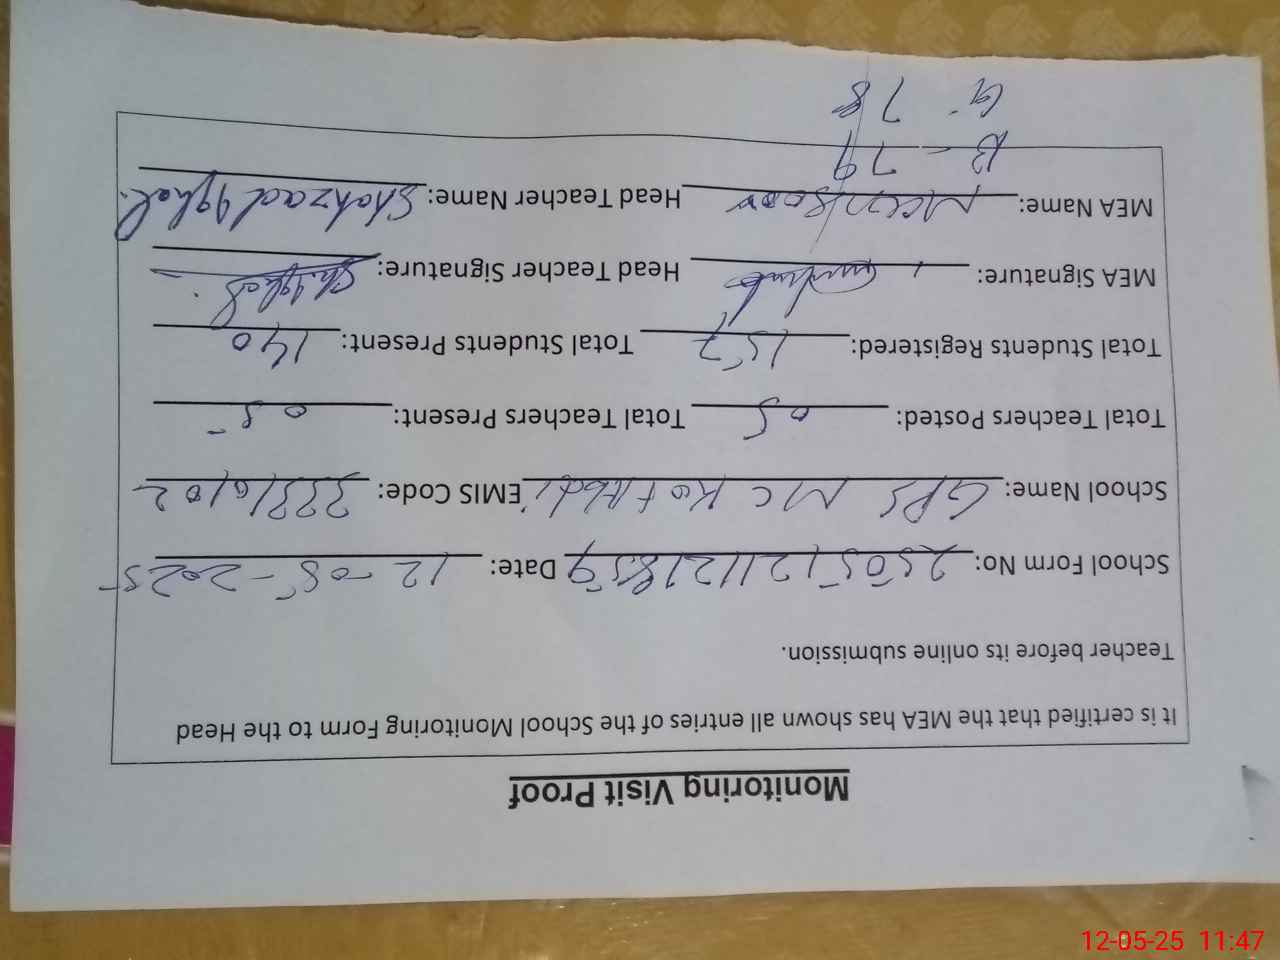 Monitoring Visit Proof
It is certified that the MEA has shown all entries of the School Monitoring Form to the Head
Teacher before its online submission.
School Form No: 25051211218559 Date: 12-05-2025
School Name: GPS MC EMIS Code:
Total Teachers Posted: 05 Total Teachers Present: 05
Total Students Registered: 157 Total Students Present: 140
MEA Signature: Head Teacher Signature: Sh.Iqbal
MEA Name: Head Teacher Name: Shahzad Iqbal.
B - 79
G - 78
12-05-25 11:47